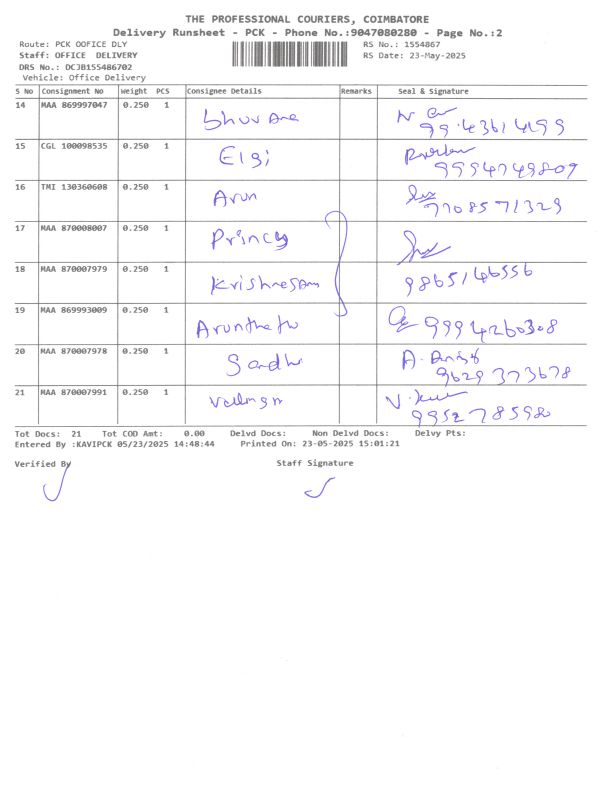 THE PROFESSIONAL COURIERS, COIMBATORE
Delivery Runsheet - PCK - Phone No.:9047080280 - Page No.:2
Route: PCK OOFICE DLY RS No.: 1554867
Staff: OFFICE DELIVERY RS Date: 23-May-2025
DRS No.: DCJB155486702
Vehicle: Office Delivery
S No Consignment No Weight PCS Consignee Details Remarks Seal & Signature
14 MAA 869997047 0.250 1
15 CGL 100098535 0.250 1 Elsi 9994749809
16 TMI 130360608 0.250 1 Arun 7708571329
17 MAA 870008007 0.250 1 Princy
18 MAA 870007979 0.250 1 Krishnesam 9865146556
19 MAA 869993009 0.250 1 9994260308
20 MAA 870007978 0.250 1 Sandhi 9629 373678
21 MAA 870007991 0.250 1 9952785980
Tot Docs: 21 Tot COD Amt: 0.00 Delvd Docs: Non Delvd Docs: Delvy Pts:
Entered By :KAVIPCK 05/23/2025 14:48:44 Printed On: 23-05-2025 15:01:21
Verified By Staff Signature